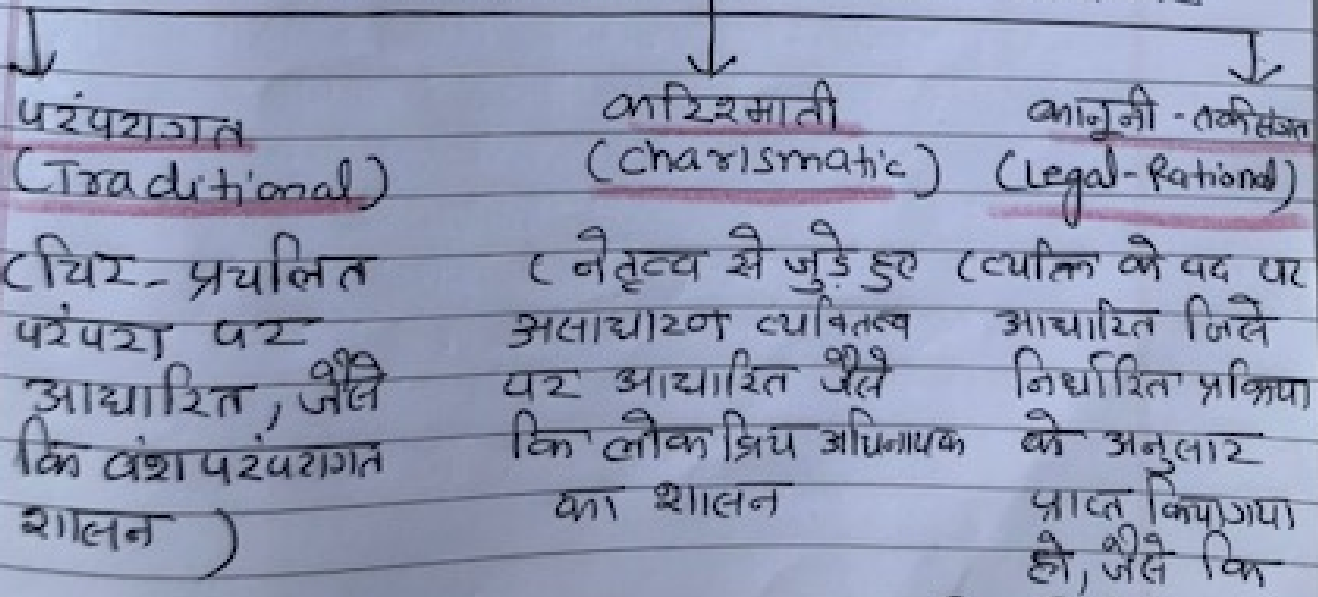 परंपरागत
(Traditional)
(चिर-प्रचलित
परंपरा पर
आधारित, जैसे
कि वंश परंपरागत
शासन )
करिश्माती
(Charismatic)
( नेतृत्व से जुड़े हुए
असाधारण व्यक्तित्व
पर आधारित जैसे
कि लोकप्रिय अधिनायक
का शासन
कानूनी - तर्कसंगत
(Legal-Rational)
(व्यक्ति के पद पर
आधारित जिसे
निर्धारित प्रक्रिया
के अनुसार
प्राप्त किया गया
हो, जैसे कि